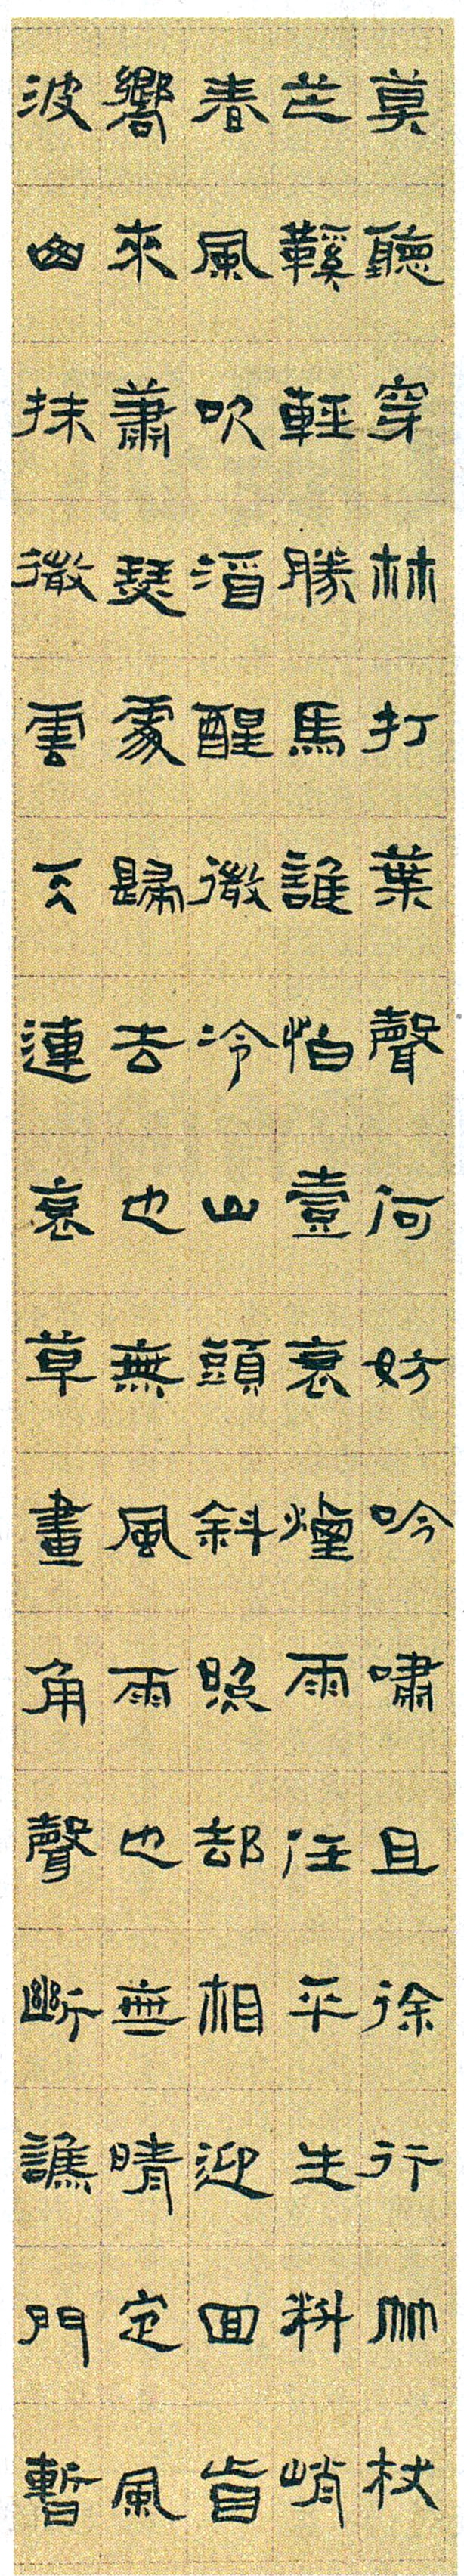 莫聽穿林打葉聲何妨吟嘯且徐行竹杖
芒鞵輕勝馬誰怕壹衰煙雨任平生料峭
春風吹酒醒微冷山頭斜照却相迎回首
嚮來蕭瑟處歸去也無風雨也無晴定風
波山抹微雲天連衰草畫角聲斷譙門暫